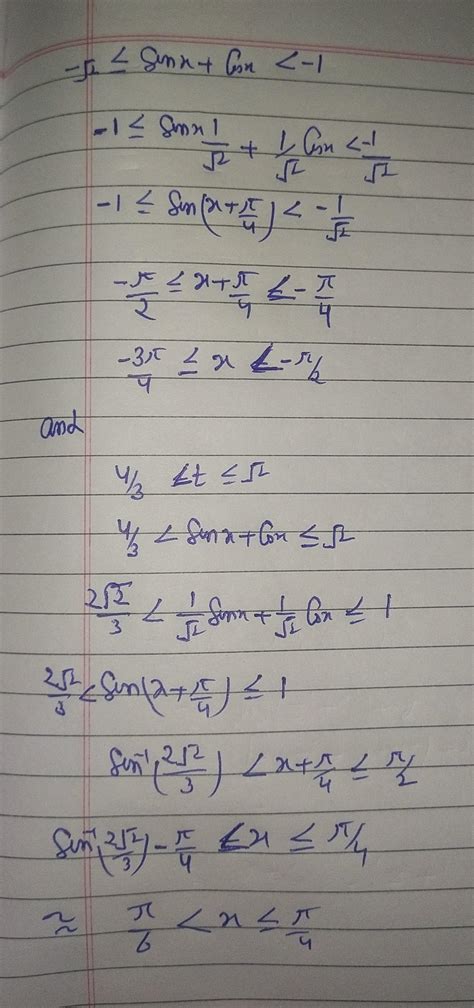 -√2 ≤ Sinx + Cosx < -1
-1 ≤ Sinx 1/√2 + 1/√2 Cosx < -1/√2
-1 ≤ Sin(x + π/4) < -1/√2
-π/2 ≤ x + π/4 < -π/4
-3π/4 ≤ x < -π/2
and
4/3 < t ≤ √2
4/3 < Sinx + Cosx ≤ √2
2√2/3 < 1/√2 Sinx + 1/√2 Cosx ≤ 1
2√2/3 < Sin(x + π/4) ≤ 1
Sin⁻¹(2√2/3) < x + π/4 ≤ π/2
Sin⁻¹(2√2/3) - π/4 < x ≤ π/4
≈ π/6 < x ≤ π/4